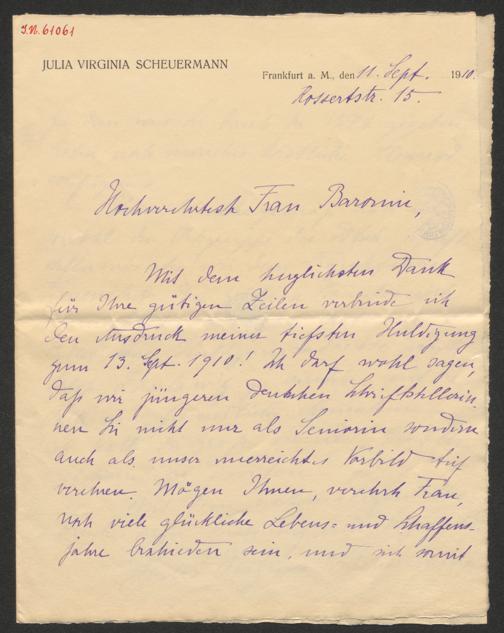 I.N. 61061
JULIA VIRGINIA SCHEUERMANN
Frankfurt a. M., den 11. Sept. 1910.
Rossertstr. 15.
Hochverehrteste Frau Baronin,
Mit dem herzlichsten Dank
für Ihre gütigen Zeilen verbinde ich
den Ausdruck meiner tiefsten Huldigung
zum 13. Sept. 1910! Ich darf wohl sagen,
daß wir jüngeren deutschen Schriftstellerin-
nen Sie nicht nur als Seniorin sondern
auch als unser unerreichtes Vorbild tief
verehren. Mögen Ihnen, verehrte Frau,
noch viele glückliche Lebens- und Schaffens-
jahre beschieden sein, und sich somit